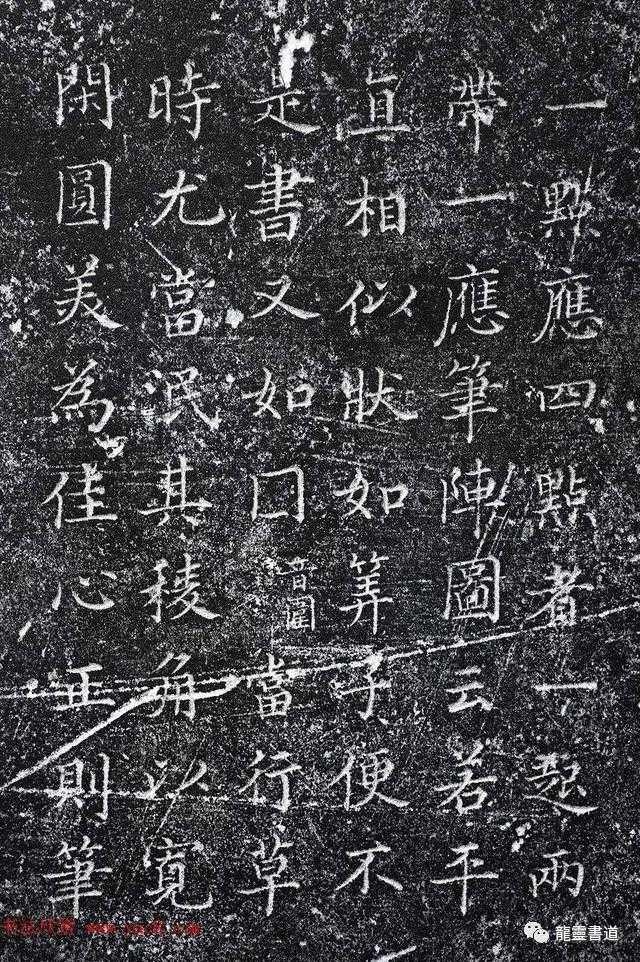 一點應四點者一起兩
帶一應筆陣圖云若平
直相似狀如筭子便不
是書又如囗音圍當行草
時尤當泯其稜角以寬
閑圓美為佳心正則筆
龍靈書道